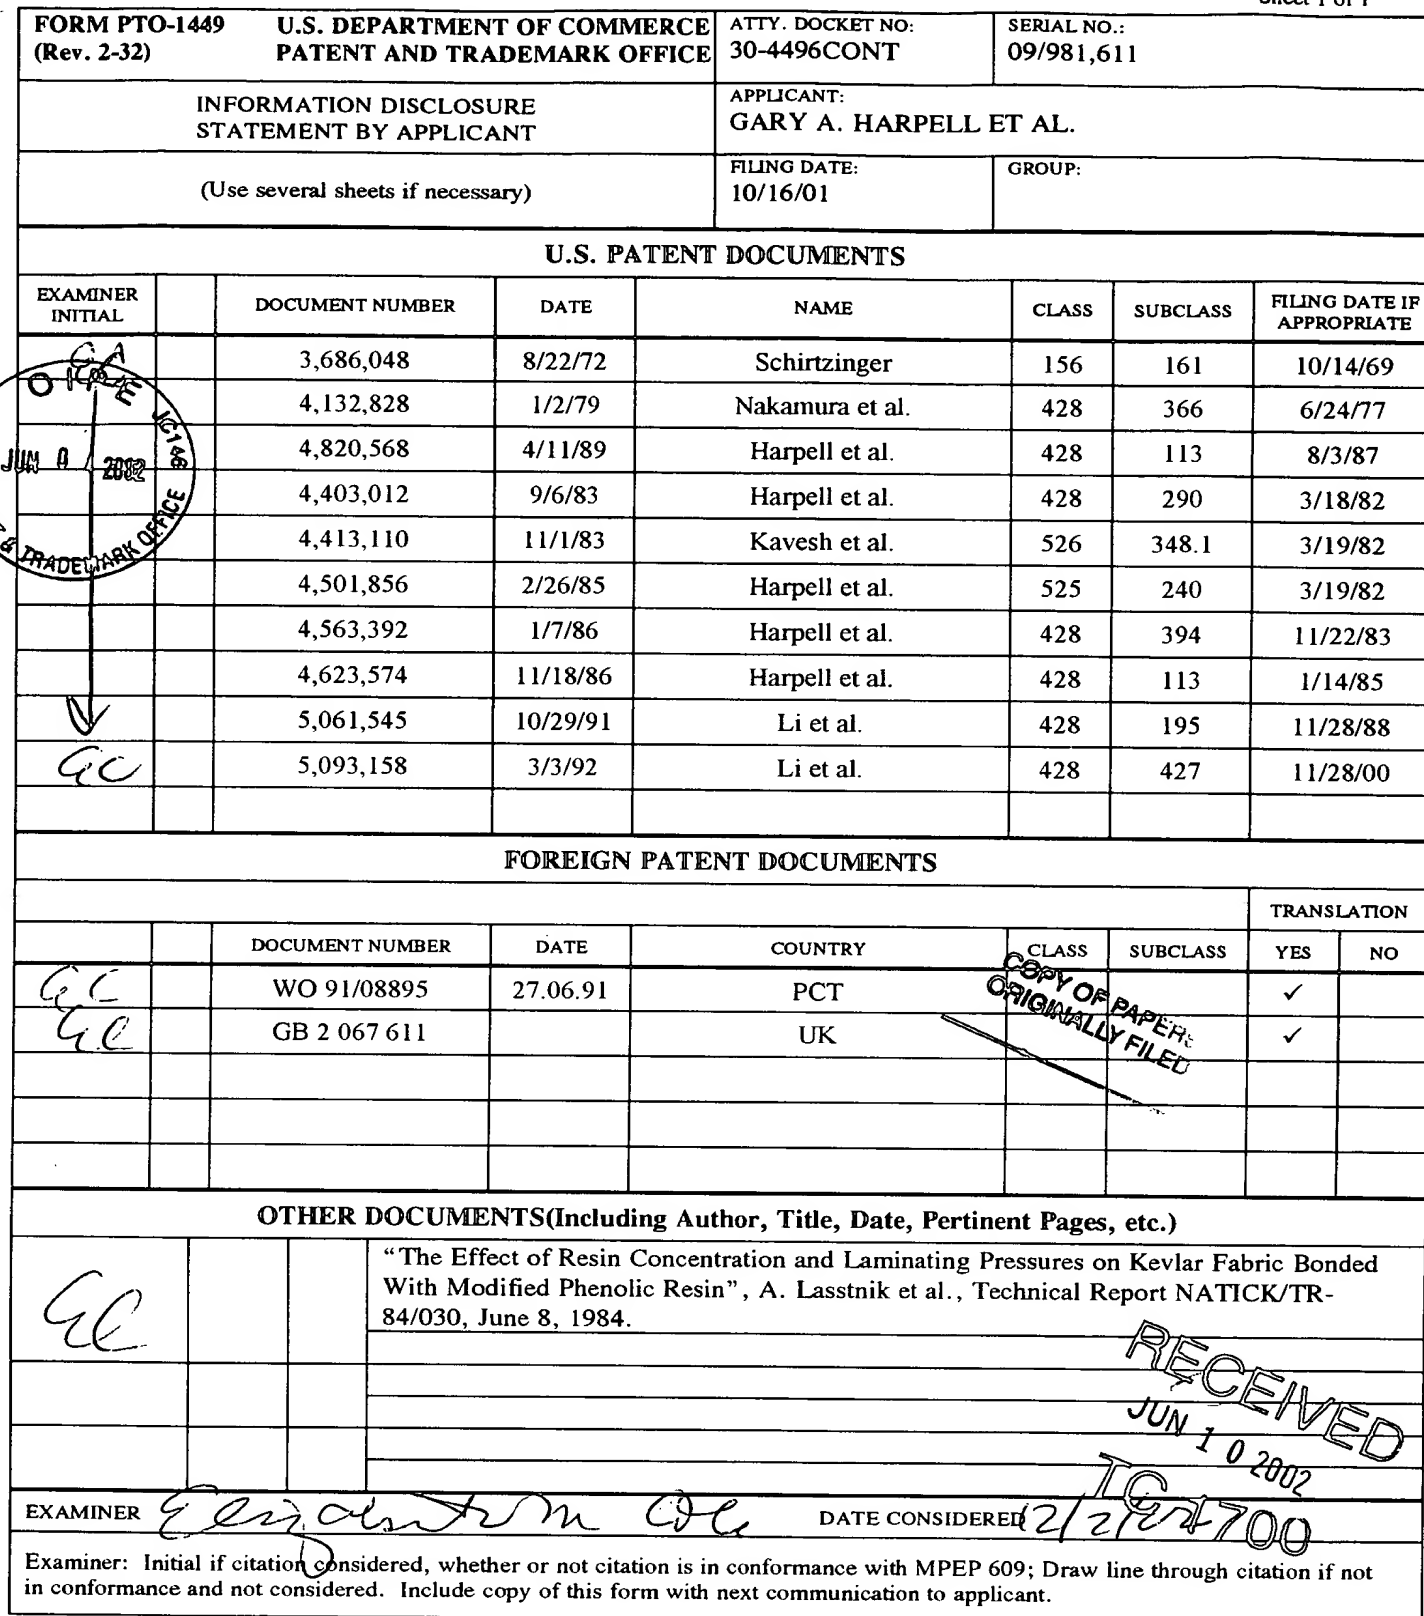 Sheet 1 of 1
FORM PTO-1449 U.S. DEPARTMENT OF COMMERCE
(Rev. 2-32) PATENT AND TRADEMARK OFFICE
ATTY. DOCKET NO:
30-4496CONT
SERIAL NO.:
09/981,611
INFORMATION DISCLOSURE
STATEMENT BY APPLICANT
APPLICANT:
GARY A. HARPELL ET AL.
(Use several sheets if necessary)
FILING DATE:
10/16/01
GROUP:
U.S. PATENT DOCUMENTS
EXAMINER INITIAL DOCUMENT NUMBER DATE NAME CLASS SUBCLASS FILING DATE IF APPROPRIATE
3,686,048 8/22/72 Schirtzinger 156 161 10/14/69
4,132,828 1/2/79 Nakamura et al. 428 366 6/24/77
4,820,568 4/11/89 Harpell et al. 428 113 8/3/87
4,403,012 9/6/83 Harpell et al. 428 290 3/18/82
4,413,110 11/1/83 Kavesh et al. 526 348.1 3/19/82
4,501,856 2/26/85 Harpell et al. 525 240 3/19/82
4,563,392 1/7/86 Harpell et al. 428 394 11/22/83
4,623,574 11/18/86 Harpell et al. 428 113 1/14/85
5,061,545 10/29/91 Li et al. 428 195 11/28/88
5,093,158 3/3/92 Li et al. 428 427 11/28/00
JC146
JUN 2002
& TRADEMARK OFFICE
FOREIGN PATENT DOCUMENTS
TRANSLATION
DOCUMENT NUMBER DATE COUNTRY CLASS SUBCLASS YES NO
WO 91/08895 27.06.91 PCT ✓
GB 2 067 611 UK ✓
COPY OF PAPERS
ORIGINALLY FILED
OTHER DOCUMENTS(Including Author, Title, Date, Pertinent Pages, etc.)
"The Effect of Resin Concentration and Laminating Pressures on Kevlar Fabric Bonded
With Modified Phenolic Resin", A. Lasstnik et al., Technical Report NATICK/TR-
84/030, June 8, 1984.
RECEIVED
JUN 10 2002
TC 1700
EXAMINER Elizabeth M Cole DATE CONSIDERED
Examiner: Initial if citation considered, whether or not citation is in conformance with MPEP 609; Draw line through citation if not
in conformance and not considered. Include copy of this form with next communication to applicant.